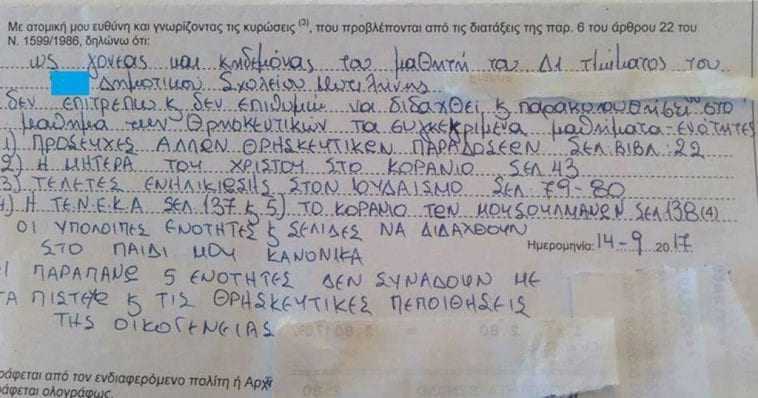 Με ατομική μου ευθύνη και γνωρίζοντας τις κυρώσεις (3), που προβλέπονται από τις διατάξεις της παρ. 6 του άρθρου 22 του
Ν. 1599/1986, δηλώνω ότι:
ως γονέας και κηδεμόνας του μαθητή του Δ1 τμήματος του
Δημοτικού Σχολείου Μυτιλήνης
δεν επιτρέπω & δεν επιθυμώ να διδαχθεί & παρακολουθήσει στο
μάθημα των Θρησκευτικών τα συγκεκριμένα μαθήματα-ενότητες
1) ΠΡΟΣΕΥΧΕΣ ΑΛΛΩΝ ΘΡΗΣΚΕΥΤΙΚΩΝ ΠΑΡΑΔΟΣΕΩΝ ΣΕΛ. ΒΙΒΛ: 22
2) Η ΜΗΤΕΡΑ ΤΟΥ ΧΡΙΣΤΟΥ ΣΤΟ ΚΟΡΑΝΙΟ ΣΕΛ 43
3) ΤΕΛΕΤΕΣ ΕΝΗΛΙΚΙΩΣΗΣ ΣΤΟΝ ΙΟΥΔΑΙΣΜΟ ΣΕΛ. 79-80
4) Η ΤΕ.ΝΕ.ΚΑ ΣΕΛ. 137 & 5) ΤΟ ΚΟΡΑΝΙΟ ΤΩΝ ΜΟΥΣΟΥΛΜΑΝΩΝ ΣΕΛ 138 (4)
ΟΙ ΥΠΟΛΟΙΠΕΣ ΕΝΟΤΗΤΕΣ & ΣΕΛΙΔΕΣ ΝΑ ΔΙΔΑΧΘΟΥΝ
ΣΤΟ ΠΑΙΔΙ ΜΟΥ ΚΑΝΟΝΙΚΑ
Ημερομηνία: 14-9 2017
ΟΙ ΠΑΡΑΠΑΝΩ 5 ΕΝΟΤΗΤΕΣ ΔΕΝ ΣΥΝΑΔΟΥΝ ΜΕ
ΤΑ ΠΙΣΤΕΥΩ & ΤΙΣ ΘΡΗΣΚΕΥΤΙΚΕΣ ΠΕΠΟΙΘΗΣΕΙΣ
ΤΗΣ ΟΙΚΟΓΕΝΕΙΑΣ
ράφεται από τον ενδιαφερόμενο πολίτη ή Αρχή
ράφεται ολογράφως.